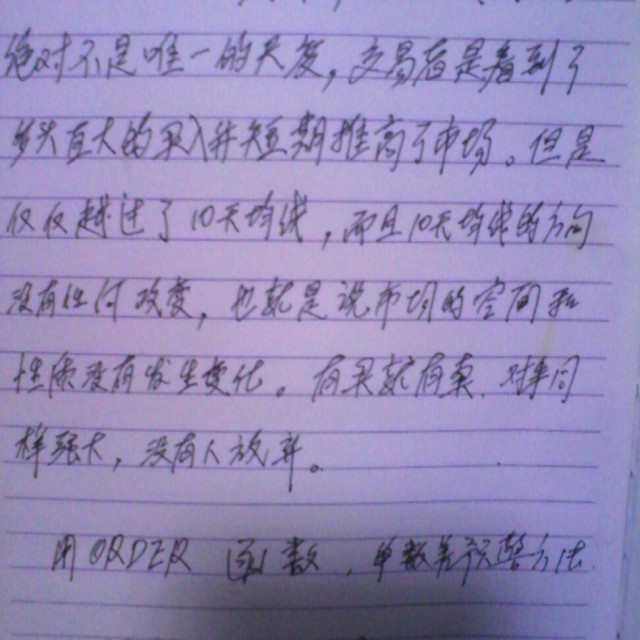 绝对不是唯一的天度，交易后是看到了
巨大的买入并短期推高了市场。但是
仅仅越过了10天均线，而且10天均线的方向
没有任何改变，也就是说市场的空间和
性质没有发生变化。有果就有果，对手同
样强大，没有人放弃。
用ORDER 函数，单数